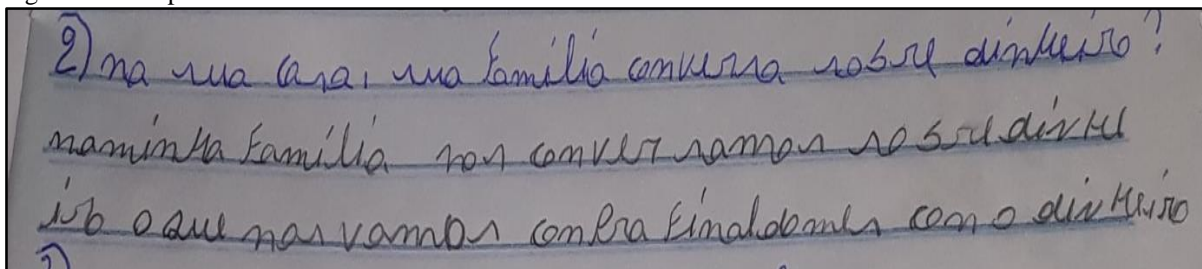 2) na sua casa, sua família conversa sobre dinheiro?
naminha família nos conversamos sobredinhe
iro o que nos vamos compra final do mes com o dinheiro